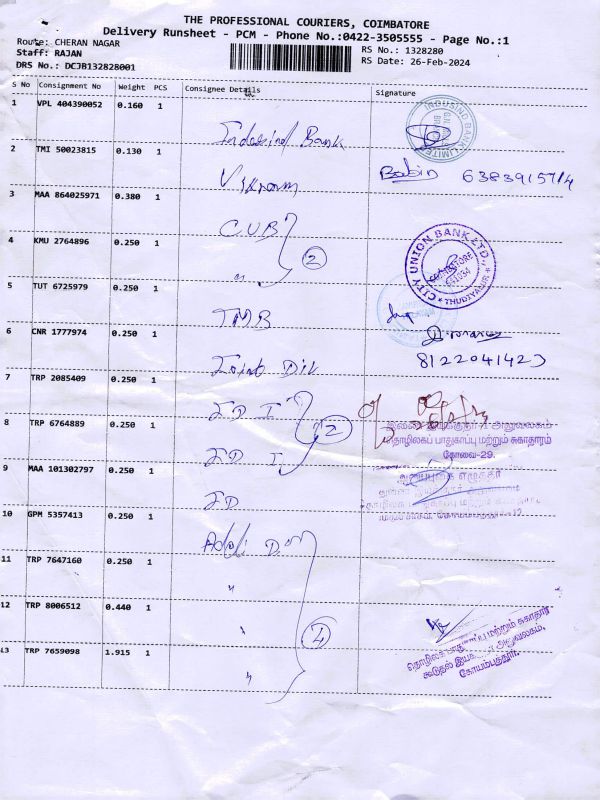 THE PROFESSIONAL COURIERS, COIMBATORE
Delivery Runsheet - PCM - Phone No.:0422-3505555 - Page No.:1
Route: CHERAN NAGAR
RS No.: 1328280
Staff: RAJAN
RS Date: 26-Feb-2024
DRS No.: DCJB132828001
S No Consignment No Weight PCS Consignee Details Signature
1 VPL 404390052 0.160 1
INDUSIND BANK LIMITED
Indusind Bank
2 TMI 50023815 0.130 1
Vikram
Babin 6383915714
3 MAA 864025971 0.380 1
C.U.B
2
4 KMU 2764896 0.250 1
〃
CITY UNION BANK LTD., * THUDIYALUR *
COIMBATORE
641034
5 TUT 6725979 0.250 1
TMB
6 CNR 1777974 0.250 1
Joint Dir
8122041423
7 TRP 2085409 0.250 1
JD I
2
8 TRP 6764889 0.250 1
JD I
தொழிலகப் பாதுகாப்பு மற்றும் சுகாதாரம்
கோவை-29.
9 MAA 101302797 0.250 1
JD
10 GPM 5357413 0.250 1
Addl D
11 TRP 7647160 0.250 1
〃
12 TRP 8006512 0.440 1
〃
4
தொழிலக பாதுகாப்பு மற்றும் சுகாதார
கூடுதல் இயக்குநர் அலுவலகம்,
கோயம்புத்தூர்.
13 TRP 7659098 1.915 1
〃